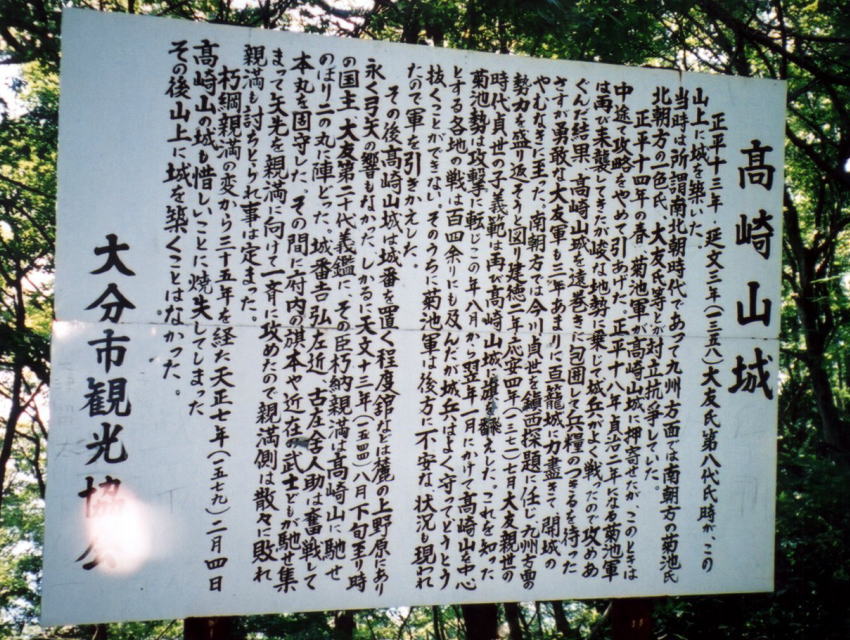 高崎山城
正平十三年 延文三年(一三五八)大友氏第八代氏時が、この
山上に城を築いた。
当時は所謂南北朝時代であって九州方面では南朝方の菊池氏
北朝方の一色氏、大友氏等とが対立抗争してした。
正平十四年の春、菊池軍が高崎山城に押寄せたが、このときは
中途で攻略をやめて引あげた。正平十八年貞治二年になる菊池軍
は再び来襲してきたが峻な地勢に乗じて城兵がよく戦ったので攻めあ
ぐんだ結果、高崎山城を遠巻きに包囲して兵糧のつきるを待った
さすが勇敢な大友軍も三年あまりに百籠城に力盡きて開城の
やむなきに至った。南朝方では今川貞世を鎮西探題に任じ九州方面の
勢力を盛り返そうと図り建徳二年応安四年(一三七一)七月大友親世の
時代貞世の子義範は再び高崎山城に旗を翻えした。これを知った
菊池勢は攻撃に転じこの年八月から翌年一月にかけて高崎山を中心
とする各地の戦は百四余りにも及んだが城兵はよく守ってとうとう
抜くことができない、そのうちに菊池軍は後方に不安な状況も現われ
たので軍を引きかえした。
その後高崎山城は城番を置く程度舘などは麓の上野原にあり
永く弓矢の響もなかった。しかるに天文十三年(一五四四)八月下旬至り時
の国主、大友第二十代義鑑に、その臣朽納親満は高崎山に馳せ
のぼり二の丸に陣どった。城番吉弘左近、古庄舎人助は奮戦して
本丸を固守した。その間に府内の旗本や近在の武士どもが馳せ集
まって矢先を親満に向けて一斉に攻めたので親満側は散々に敗れ
親満も討ちとられ事は定まった。
朽綱親満の変から三十五年を経た天正七年(一五七九)二月四日
高崎山の城も惜しいことに焼失してしまった
その後山上に城を築くことはなかった。
大分市観光協会